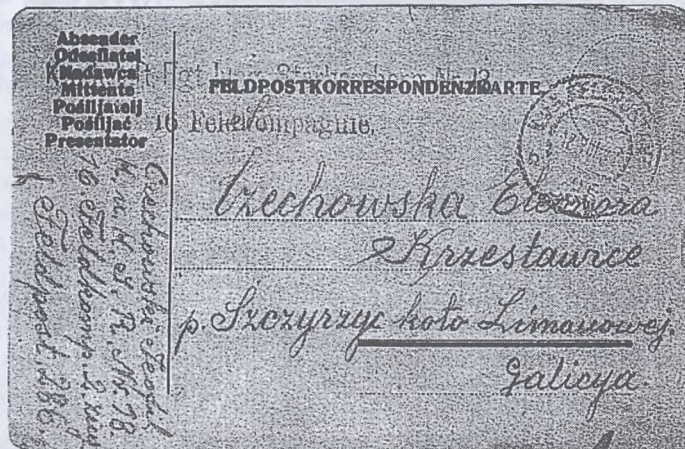 Absender
Odesílatel
Nadawca
Mittente
Pošiljatelj
Pošiljač
Presentator
FELDPOSTKORRESPONDENZKARTE
16 Feldkompagnie.
Czechowska
Krzesławice
p. Szczyrzyc koło Limanowej.
Galicya
Czechowski
16 Feldkomp.
Feldpost 286.